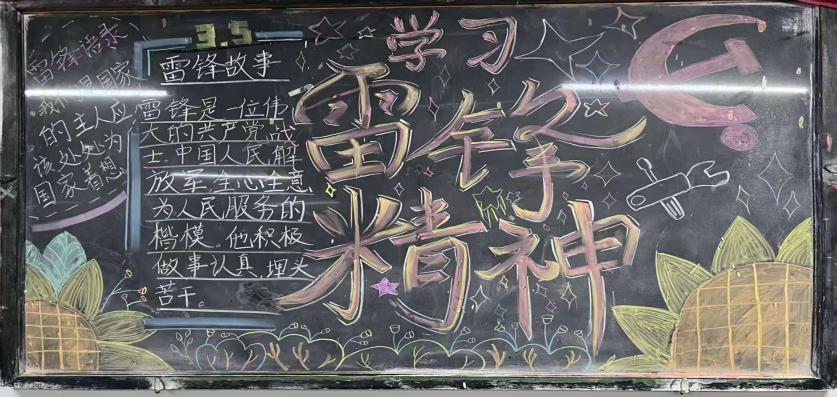 雷锋语录
我们是国家
的主人应
该处处为
国家着想
3.5
雷锋故事
雷锋是一位伟
大的共产党战
士.中国人民解
放军,全心全意
为人民服务的
楷模。他积极
做事认真,埋头
苦干。
学习
雷锋
精神